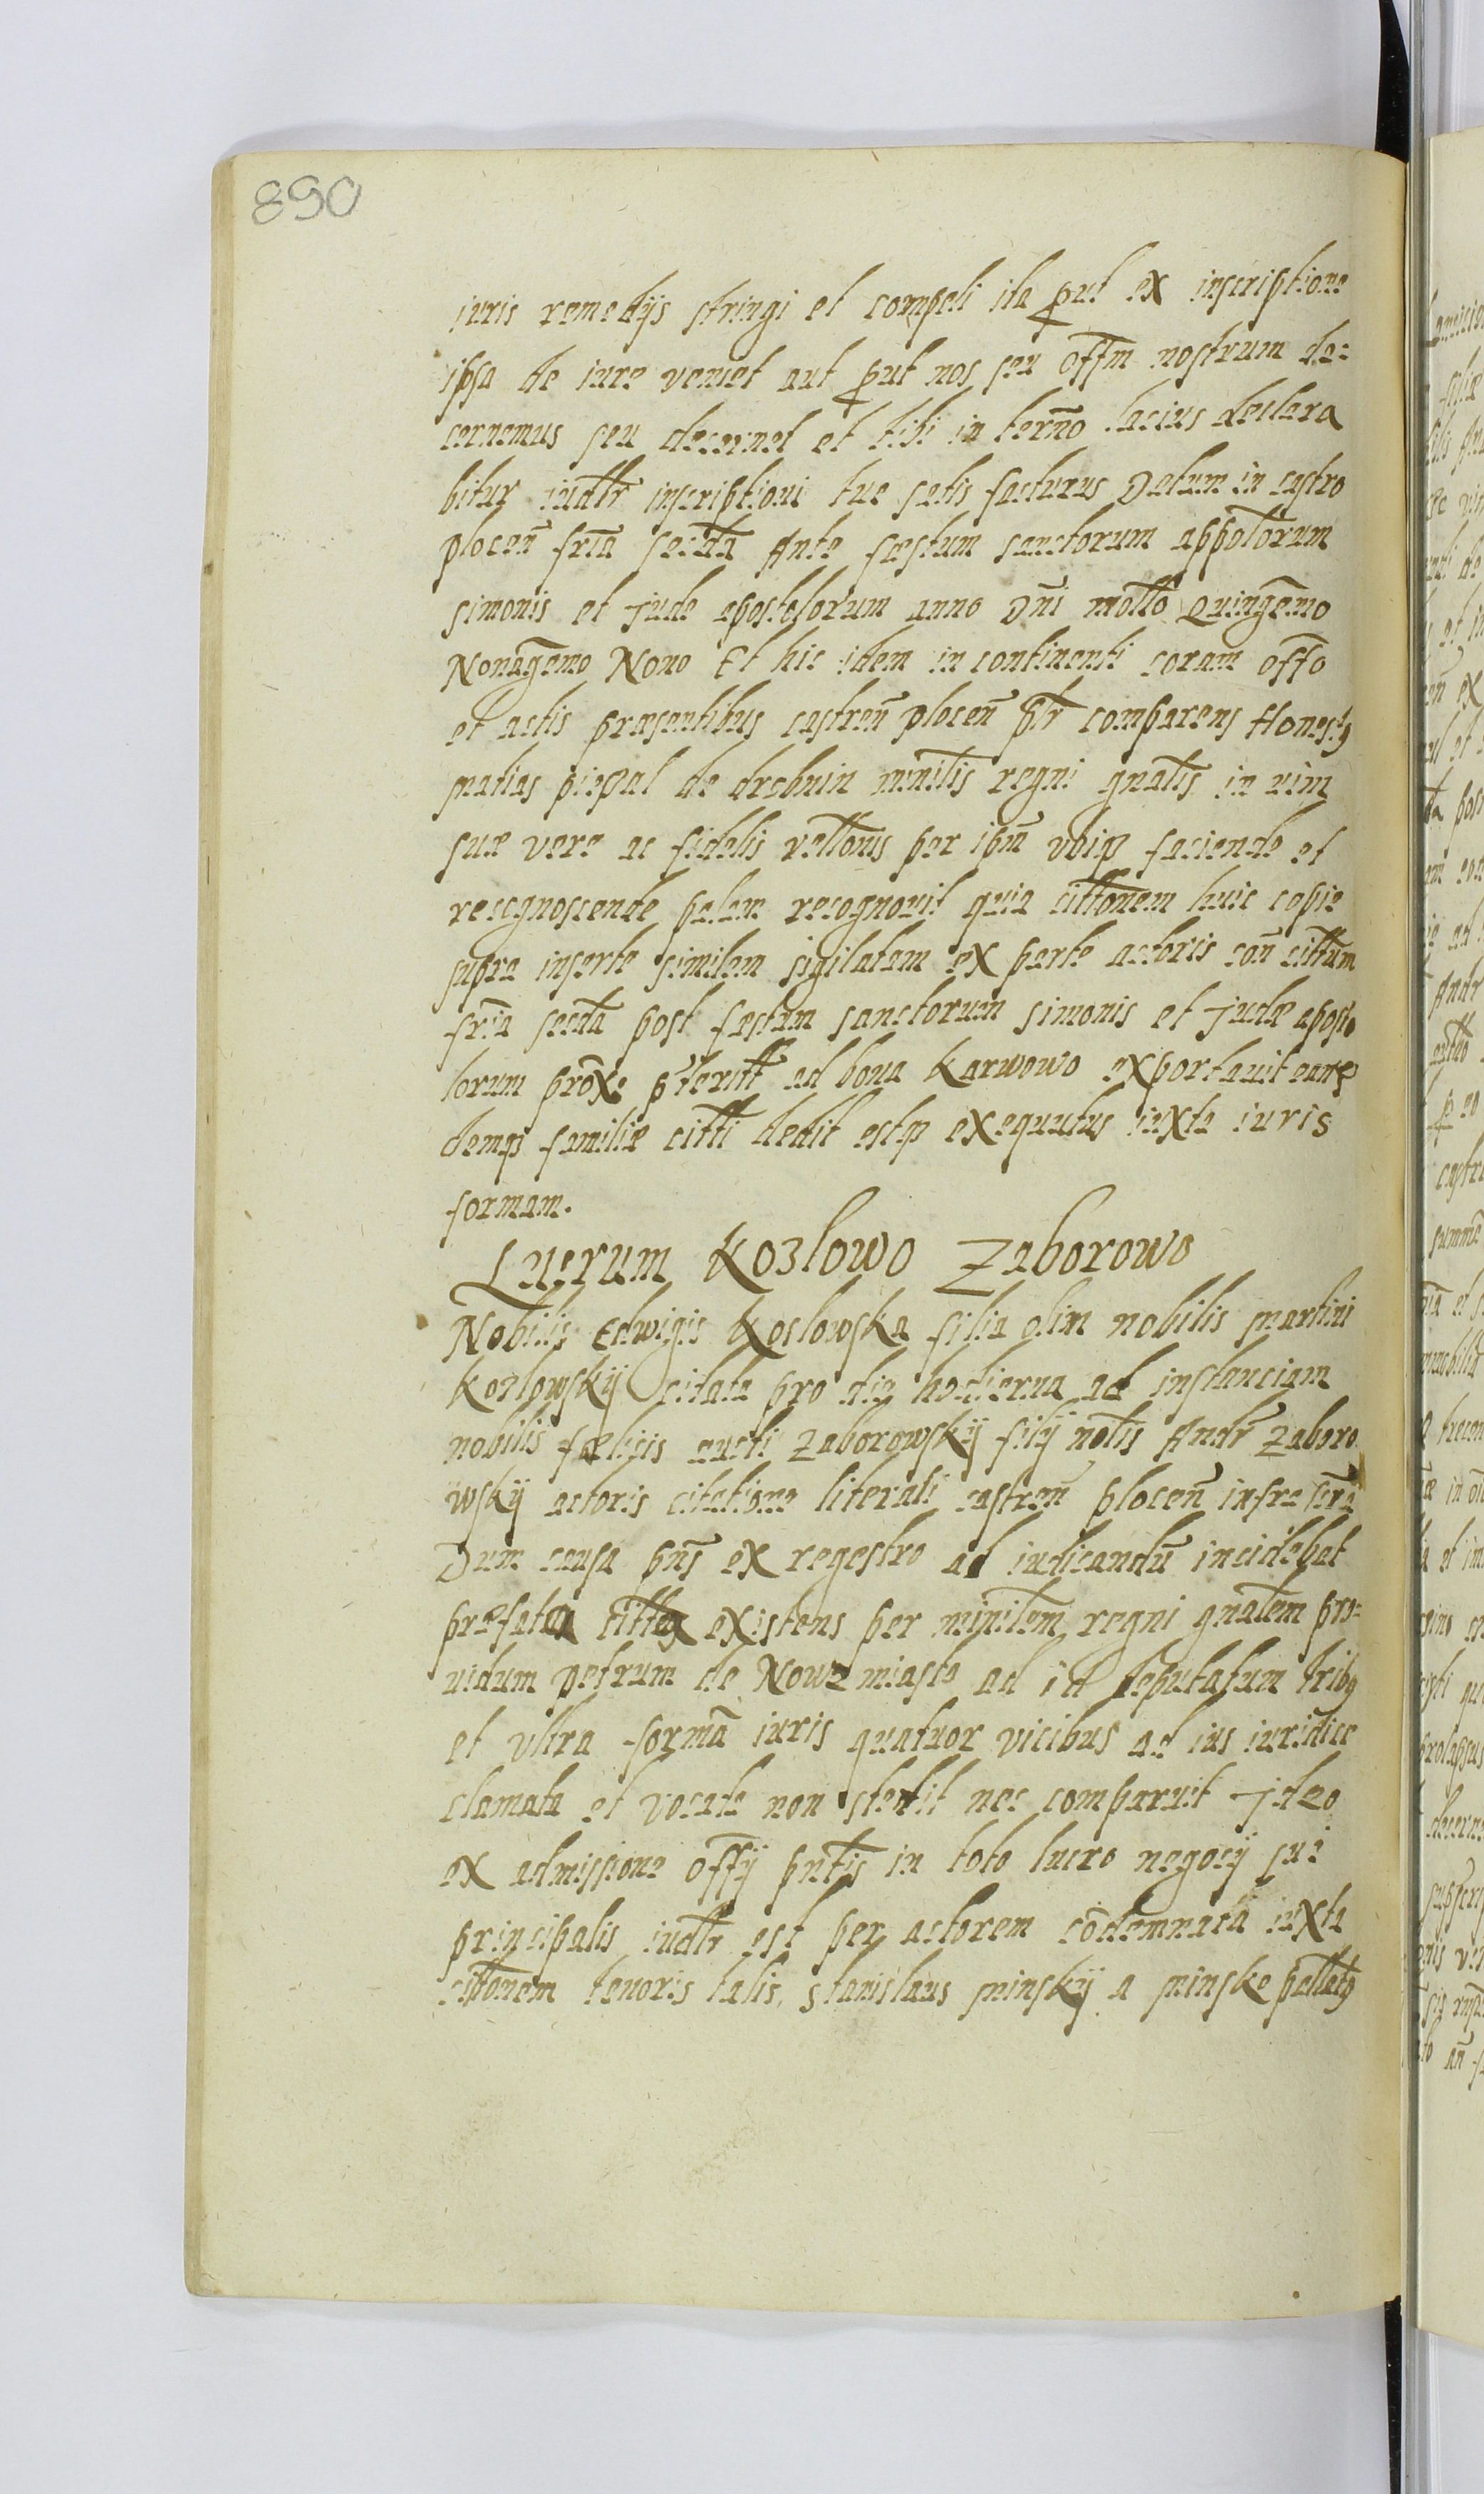 890
iuris remedijs stringi et compeli ita ꝓut ex inscriptione
ipsa de iure veniet aut ꝓut nos seu offm̃ nostrum de=
cernemus seu decernet et tibi in term̃o lacius declara
bitur iudl̃r inscriptioni tue satis facturus Datum in castro
plocen̄ fria secda Ante fæstum sanctorum appolorum
simonis et Jude apostolorum anno Dn̄i mol̃lo Quingẽmo
Nonagẽmo Nono Et hic idem in continenti coram off̃o
et actis præsentibus castren̄ plocen̄ pl̃r comparens Honestꝰ
matias piepal de drobnin minil̃is regni gnal̃is in vim
suæ vere ac fidelis rel̃lonis per ipm̄ vbiqꝫ faciende et
recognoscende palam recognouit quia citt̃onem huic copie
supra inserte similem sigilatam ex parte actoris con̄ citt̃um
fria secda post fæstum sanctorum simonis et Judæ aposto
lorum prõxe pterit̃t ad bona Karwowo exportauit eamqꝫ
demqꝫ familiæ citt̃i dedit estqꝫ exequutus iuxta iuris
formam.
Lucrum Kozlowo Zaborowo
Nobilis Edwigis Koslowska filia olim nobilis martini
Kozlowskÿ citata pro die hodierna ad instanciam
nobilis fælicis aucti Zaborowskÿ filÿ nol̃is Andr̃ Zaboro
wskÿ actoris citatione literali castren̄ plocen̄ infra scr̃a
Dum causa pn̄s ex regestro ad iudicandū incidebat
præfata existens per minil̃em regni gnal̃em pro=
uidum petrum de Nowemiasto ad id deputatum tribꝰ
et vltra formā iuris quatuor vicibus ad ius iuridice
clamata et vocata non stetit nec comparuit Ideo
ex admissione off̃ÿ pntis in toto lucro negocÿ sui
principalis iudl̃r est per actorem cõdemnata iuxta
citt̃onem tenoris talis, stanislaus minskÿ a minske pallatꝰ